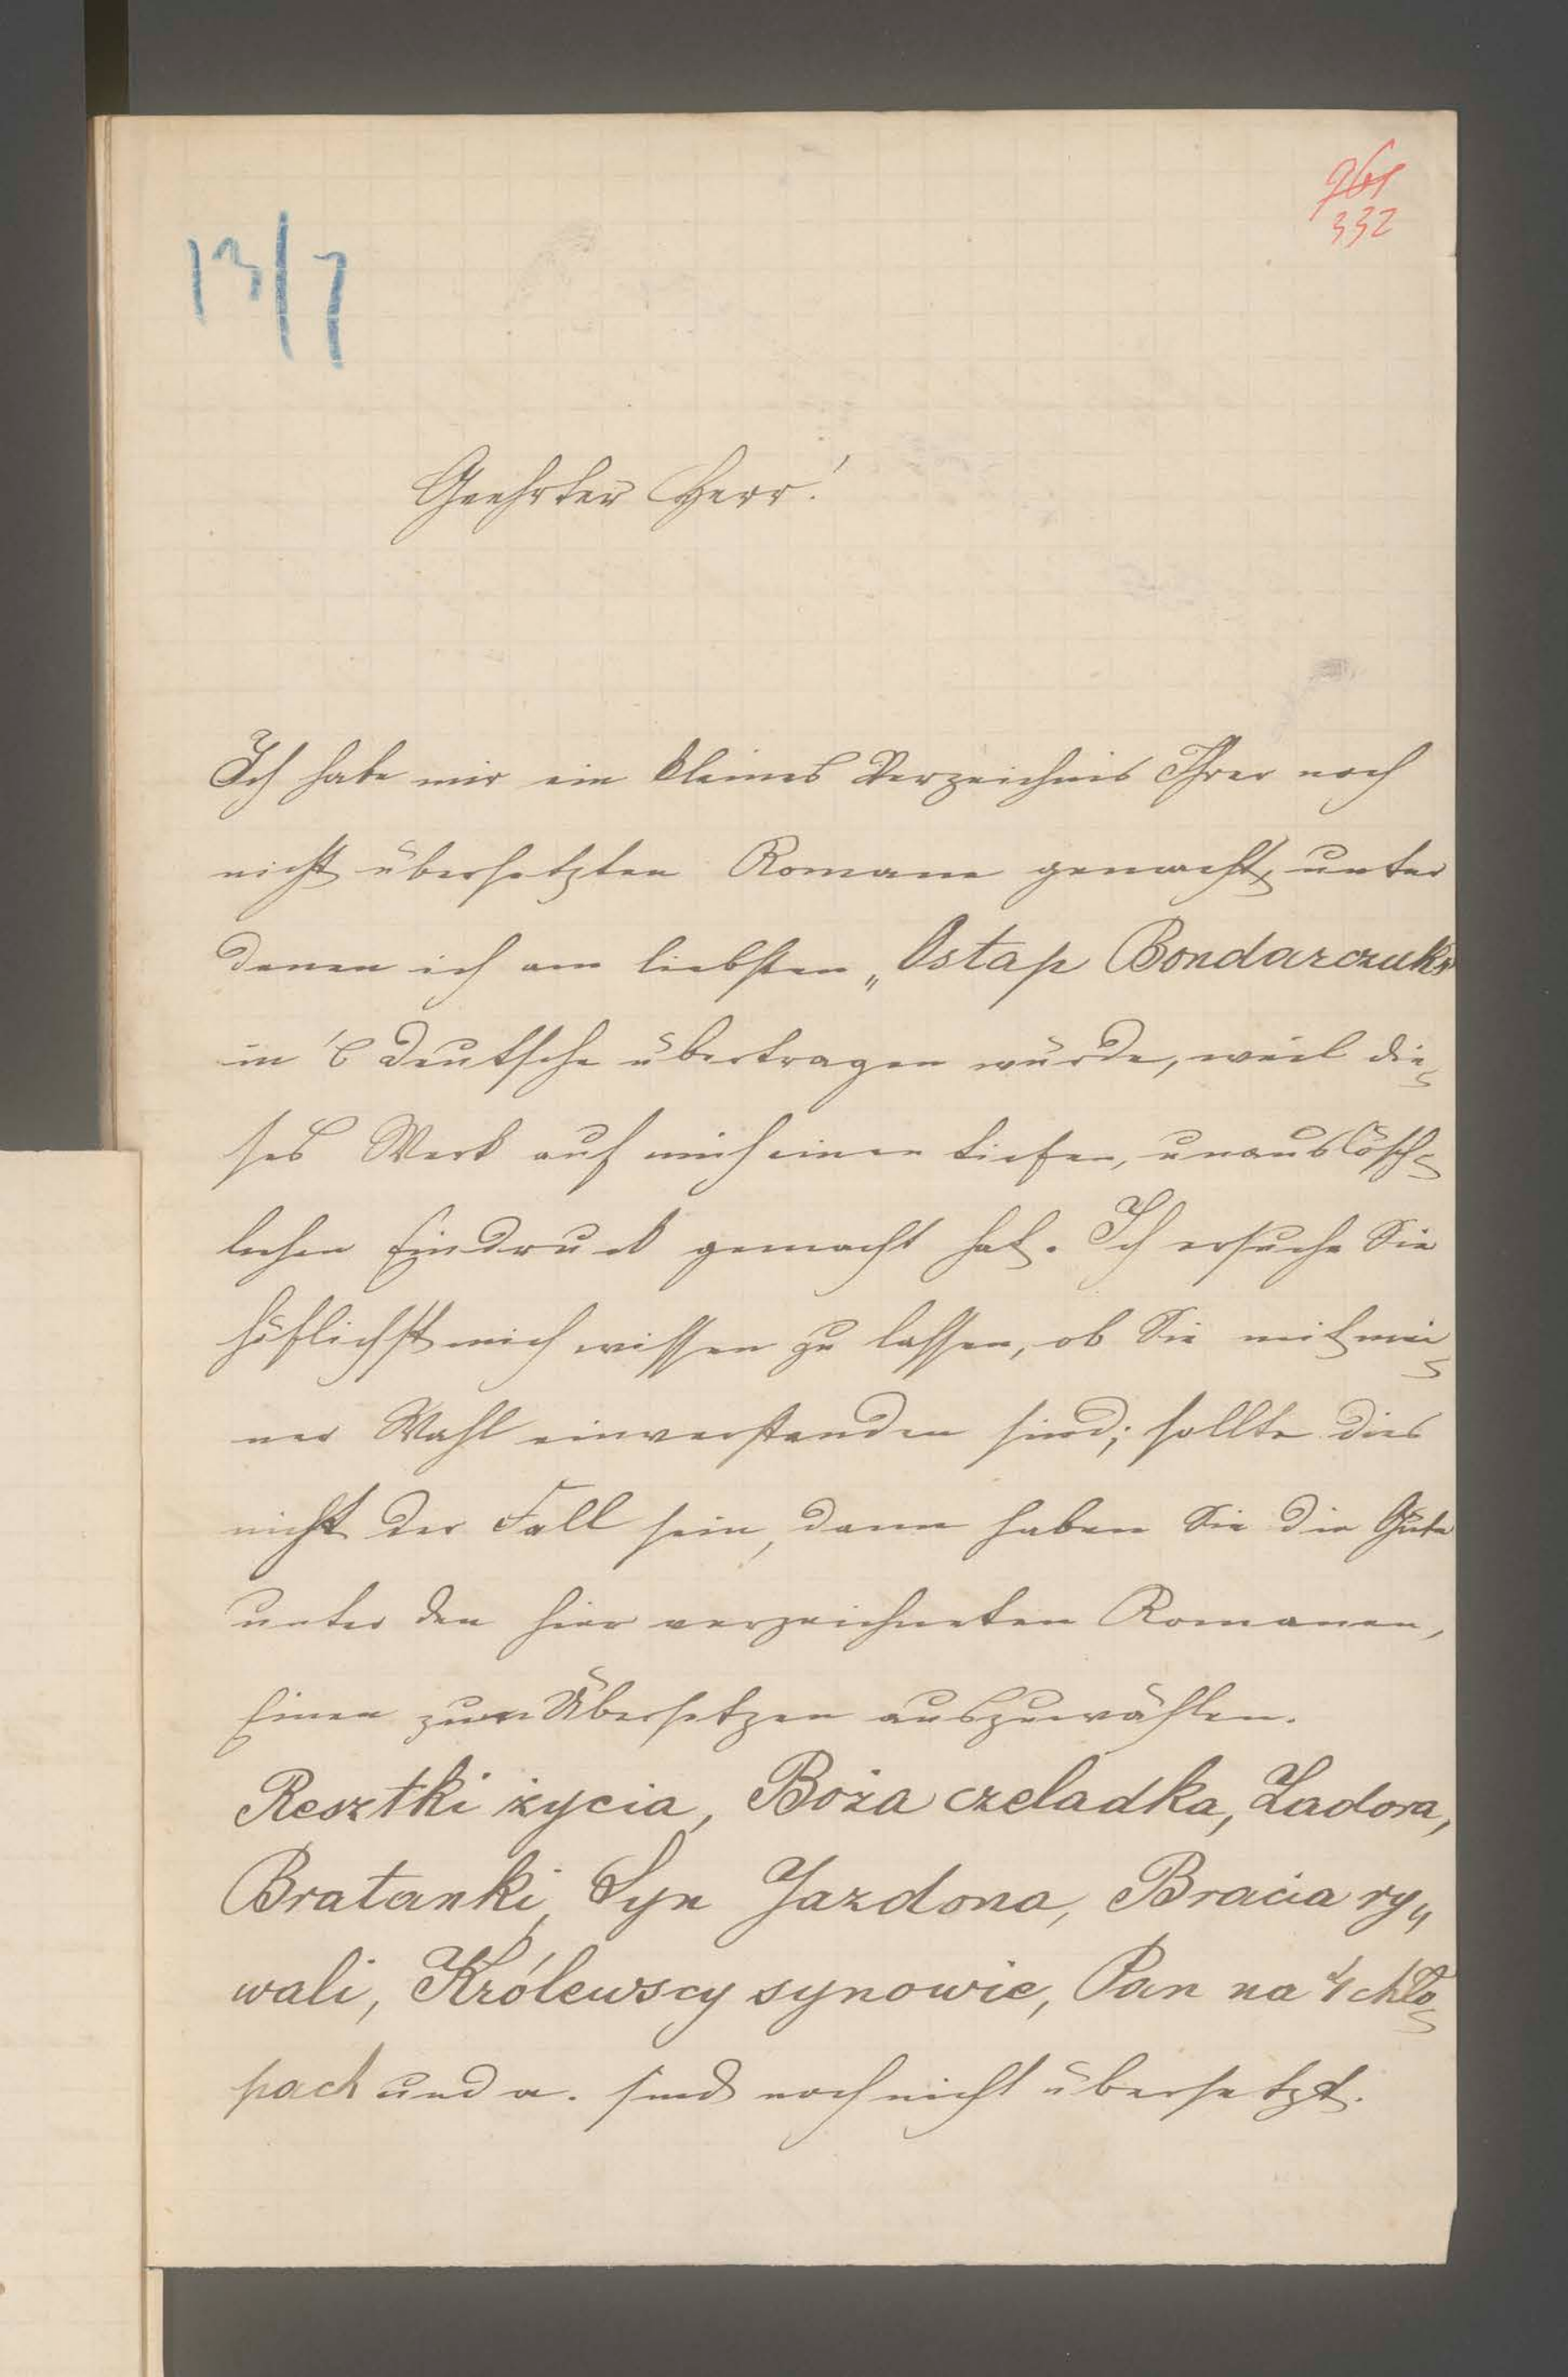 961
332
13/7
Geehrter Herr!
Ich habe mir ein kleines Verzeichnis Ihrer noch
nicht übersetzten Romane gemacht, unter
denen ich am liebsten „Ostap Bondarczuk“
in's Deutsche übertragen würde, weil die-
ses Werk auf mich einen tiefen, unauslösch-
lichen Eindruck gemacht hat. Ich ersuche Sie
höflichst mich wissen zu lassen, ob Sie mit mei-
ner Wahl einverstanden sind; sollte dies
nicht der Fall sein, dann haben Sie die Güte
unter den hier verzeichneten Romanen,
Einen zum Übersetzen auszuwählen.
Resztki życia, Boża czeladka, Zadora,
Bratanki, Syn Jazdona, Bracia ry„
wali, Królewscy synowie, Pan na 4 chło-
pach und a. sind noch nicht übersetzt.